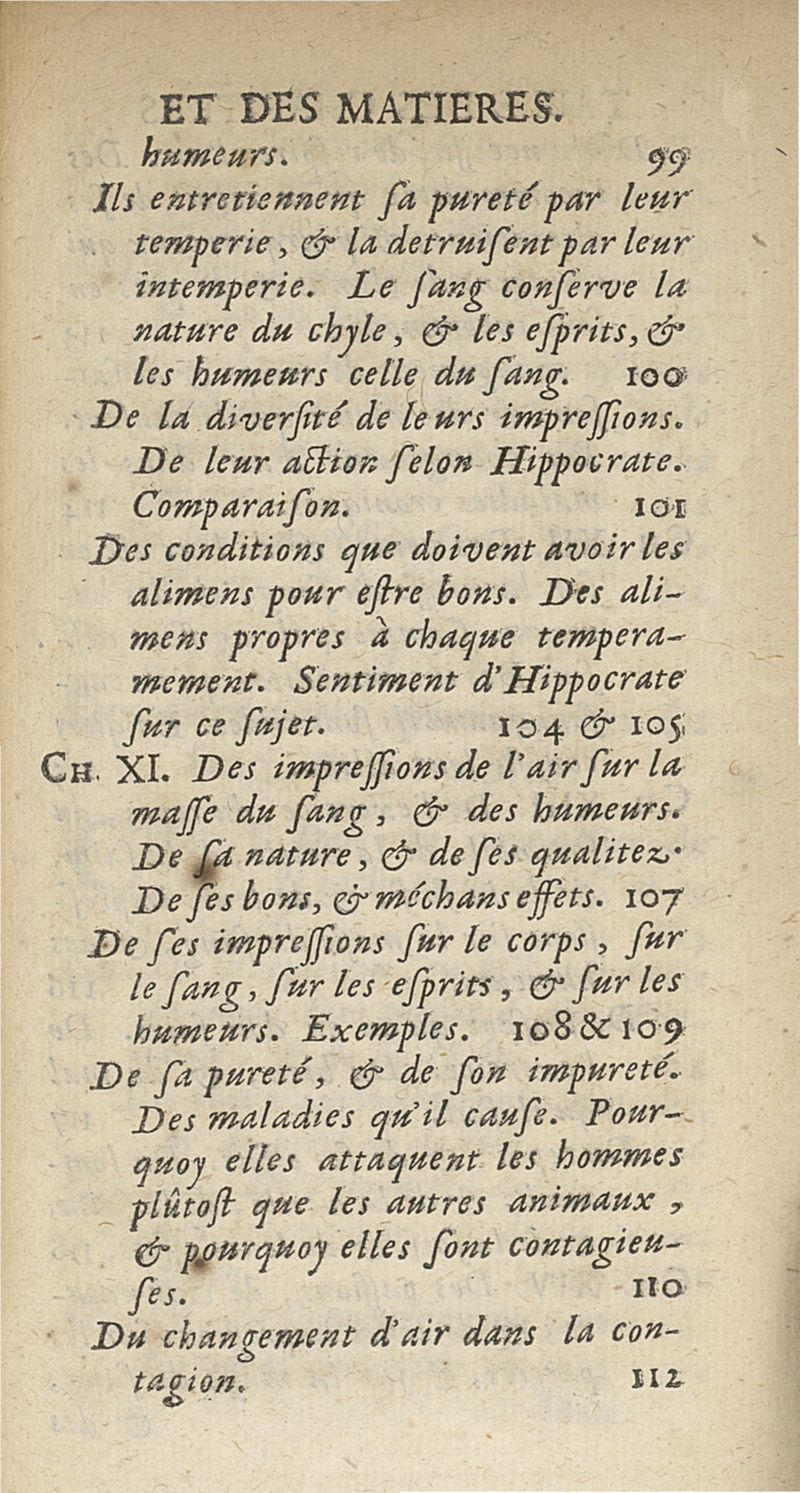 ET DES MATIERES.
humeurs. 99
Ils entretiennent ſa pureté par leur
temperie, & la detruiſent par leur
intemperie. Le ſang conſerve la
nature du chyle, & les eſprits, &
les humeurs celle du ſang. 100
De la diverſité de leurs impreſſions.
De leur action ſelon Hippocrate.
Comparaiſon. 101
Des conditions que doivent avoir les
alimens pour eſtre bons. Des ali-
mens propres à chaque tempera-
mement. Sentiment d'Hippocrate
ſur ce ſujet. 104 & 105
CH. XI. Des impreſſions de l'air ſur la
maſſe du ſang, & des humeurs.
De ſa nature, & de ſes qualitez.
De ſes bons, & méchans effets. 107
De ſes impreſſions ſur le corps, ſur
le ſang, ſur les eſprits, & ſur les
humeurs. Exemples. 108 & 109
De ſa pureté, & de ſon impureté.
Des maladies qu'il cauſe. Pour-
quoy elles attaquent les hommes
plûtoſt que les autres animaux,
& pourquoy elles ſont contagieu-
ſes. 110
Du changement d'air dans la con-
tagion. 112